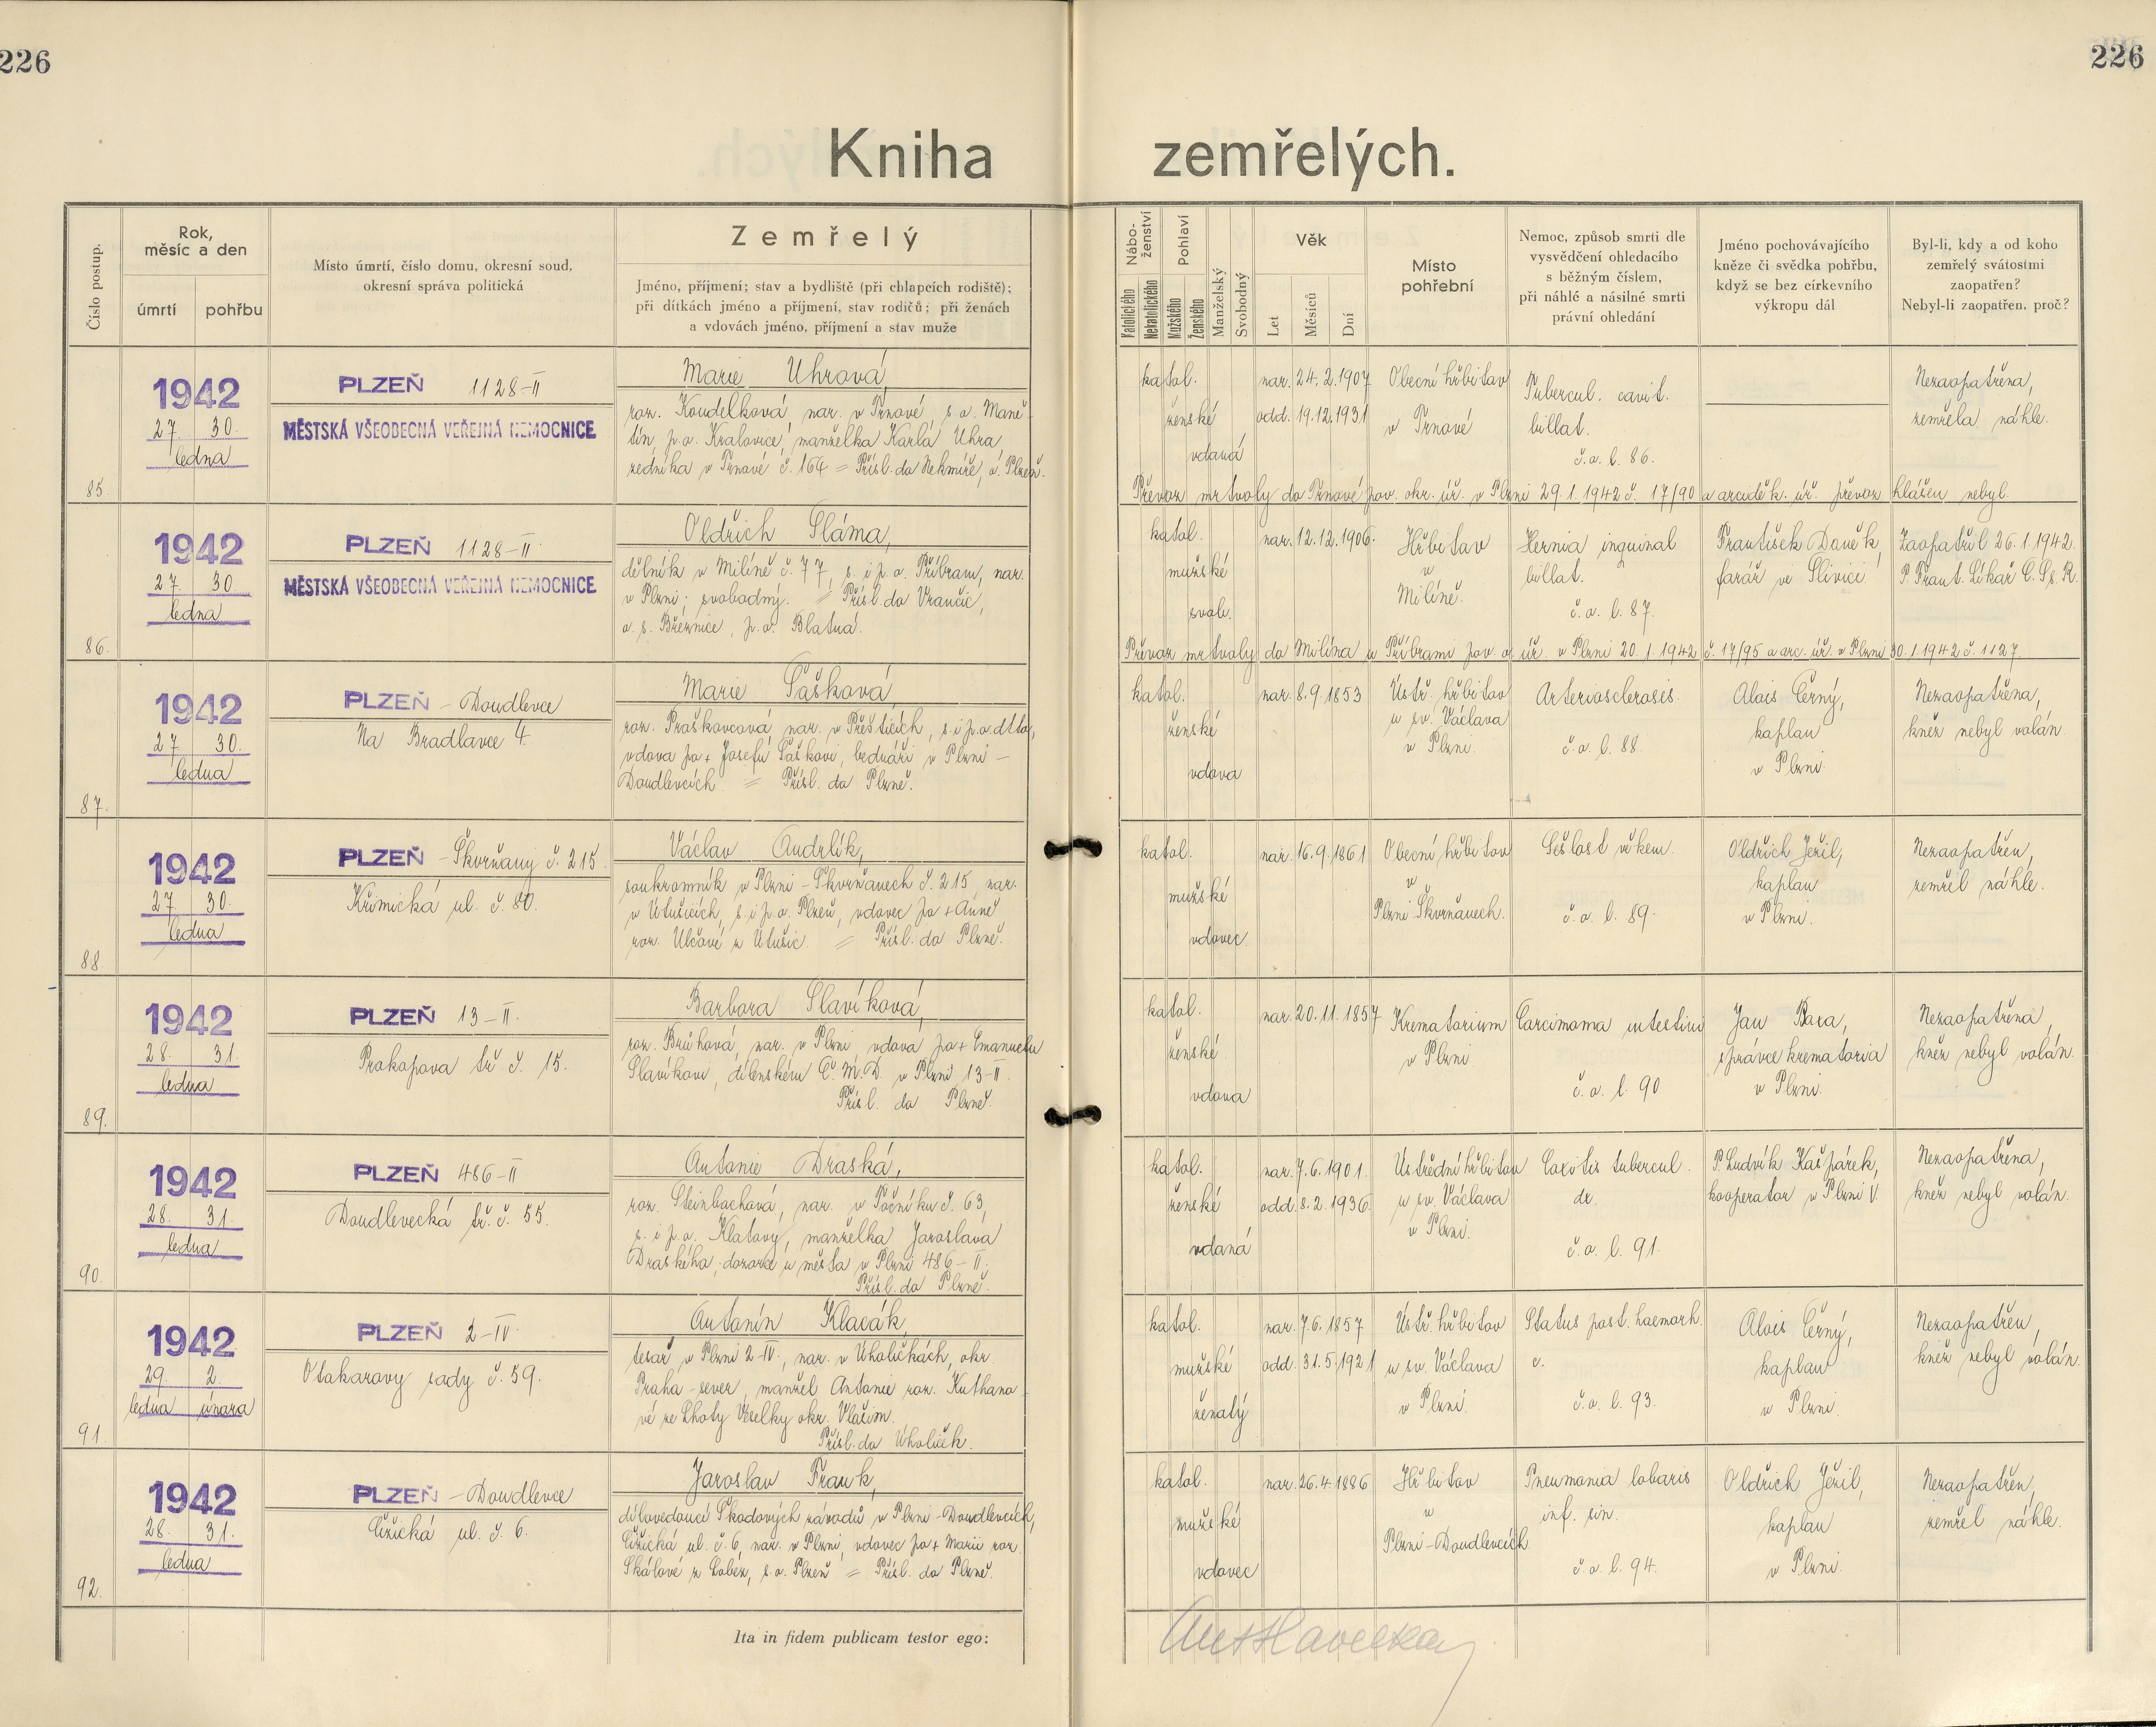 226
226
Kniha zemřelých.
Číslo postup.
Rok,
měsíc a den
úmrtí
pohřbu
Místo úmrtí, číslo domu, okresní soud,
okresní správa politická
Zemřelý
Jméno, příjmení; stav a bydliště (při chlapcích rodiště);
při dítkách jméno a příjmení, stav rodičů; při ženách
a vdovách jméno, příjmení a stav muže
Nábo-
ženství
Katolického
Nekatolického
Pohlaví
Mužského
Ženského
Manželský
Svobodný
Věk
Let
Měsíců
Dní
Místo
pohřební
Nemoc, způsob smrti dle
vysvědčení ohledacího
s běžným číslem,
při náhlé a násilné smrti
právní ohledání
Jméno pochovávajícího
kněze či svědka pohřbu,
když se bez církevního
výkropu dál
Byl-li, kdy a od koho
zemřelý svátostmi
zaopatřen?
Nebyl-li zaopatřen, proč?
85.
1942
27. 30.
ledna
PLZEŇ 1128-II
MĚSTSKÁ VŠEOBECNÁ VEŘEJNÁ NEMOCNICE
Marie Uhrová,
roz. Koudelková, nar. v Trnové, s. o. Maně-
tín, p. o. Kralovice, manželka Karla Uhra
zedníka v Trnové č. 164 = Přísl. do Nekmíře, o. Plzeň.
katol.
ženské
vdaná
nar. 24. 2. 1907
odd. 19. 12. 1931
Obecní hřbitov
v Trnové
Tubercul. cavit.
billat.
č. o. l. 86.
Nezaopatřena,
zemřela náhle.
Převoz mrtvoly do Trnové pov. okr. úř. v Plzni 29. 1. 1942 č. 17/90 a arciděk. úř. převoz hlášen nebyl.
86.
1942
27. 30.
ledna
PLZEŇ 1128-II
MĚSTSKÁ VŠEOBECNÁ VEŘEJNÁ NEMOCNICE
Oldřich Sláma,
dělník v Milíně č. 77, s. i p. o. Příbram, nar.
v Plzni; svobodný. = Přísl. do Vrančic,
o. s. Březnice, p. o. Blatná.
katol.
mužské
svob.
nar. 12. 12. 1906.
Hřbitov
v
Milíně.
Hernia inguinal
billat.
č. o. l. 87.
František Daněk,
farář ve Slivici.
Zaopatřil 26. 1. 1942.
P. Frant. Líkař C. Ss. R.
Převoz mrtvoly do Milína u Příbrami pov. o. úř. v Plzni 20. 1. 1942 č. 17/95 a arc. úř. v Plzni 30. 1. 1942 č. 1127.
87.
1942
27. 30.
ledna
PLZEŇ - Doudlevce
Na Bradlavce 4.
Marie Šašková,
roz. Praškovcová, nar. v Přešticích, s. i p. o. dtto,
vdova po + Josefu Šaškovi, bednáři v Plzni -
Doudlevcích = Přísl. do Plzně.
katol.
ženské
vdova
nar. 8. 9. 1853
Ústř. hřbitov
u sv. Václava
v Plzni.
Arteriosclerosis.
č. o. l. 88.
Alois Černý,
kaplan
v Plzni.
Nezaopatřena,
kněz nebyl volán.
88.
1942
27. 30.
ledna
PLZEŇ - Škvrňany č. 215
Křimická ul. č. 80.
Václav Andrlík,
soukromník v Plzni - Škvrňanech č. 215, nar.
v Útušicích, s. i p. o. Plzeň, vdovec po + Anně
roz. Ulčové z Útušic. = Přísl. do Plzně.
katol.
mužské
vdovec.
nar. 16. 9. 1861
Obecní hřbitov
v
Plzni Škvrňanech.
Sešlost věkem.
č. o. l. 89.
Oldřich Ježil,
kaplan
v Plzni.
Nezaopatřen,
zemřel náhle.
89.
1942
28. 31.
ledna
PLZEŇ 13-II.
Prokopova tř. č. 15.
Barbora Slavíková,
roz. Brůhová, nar. v Plzni vdova po + Emanuelu
Slavíkovi, dílenském Č. M. D. v Plzni 13-II.
Přísl. do Plzně.
katol.
ženské
vdova
nar. 20. 11. 1857
Krematorium
v Plzni
Carcimoma intestini
č. o. l. 90
Jan Baxa,
správce krematoria
v Plzni.
Nezaopatřena,
kněz nebyl volán.
90.
1942
28. 31.
ledna
PLZEŇ 486-II
Doudlevecká tř. č. 55.
Antonie Draská,
roz. Steinbachová, nar. v Točníku č. 63,
s. i p. o. Klatovy, manželka Jaroslava
Draského, dozorce u města v Plzni 486-II.
Přísl. do Plzně.
katol.
ženské
vdaná
nar. 7. 6. 1901.
odd. 8. 2. 1936.
Ústřední hřbitov
u sv. Václava
v Plzni.
Coxitis tubercul.
dx.
č. o. l. 91.
P. Ludvík Kašpárek,
kooperator v Plzni V.
Nezaopatřena,
kněz nebyl volán.
91.
1942
29. 2.
ledna února
PLZEŇ 2-IV
Otakarovy sady č. 59.
Antonín Klacák,
tesař v Plzni 2-IV., nar. v Úholičkách, okr.
Praha-sever, manžel Antonie roz. Kuthano-
vé ze Lhoty Veselky okr. Vlašim.
Přísl. do Úholiček.
katol.
mužské
ženatý
nar. 7. 6. 1857
odd. 31. 5. 1921
Ústř. hřbitov
u sv. Václava
v Plzni.
Status post. haemorh.
c.
č. o. l. 93.
Alois Černý,
kaplan
v Plzni.
Nezaopatřen,
kněz nebyl volán.
92.
1942
28. 31.
ledna
PLZEŇ - Doudlevce
Čižická ul. č. 6.
Jaroslav Frank,
dílovedoucí Škodových závodů v Plzni-Doudlevcích,
Čižická ul. č. 6, nar. v Plzni, vdovec po + Marii roz.
Skálové z Lobez, s. o. Plzeň = Přísl. do Plzně.
katol.
mužské
vdovec
nar. 26. 4. 1886
Hřbitov
v
Plzni-Doudlevcích.
Pneumonia lobaris
inf. sin.
č. o. l. 94.
Oldřich Ježil,
kaplan
v Plzni.
Nezaopatřen,
zemřel náhle.
Ita in fidem publicam testor ego:
Ant Havelka